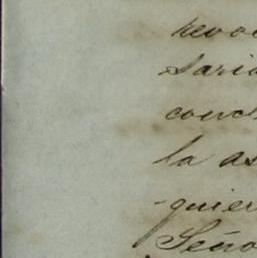 revo
saria
conc
la as
-quier
Seño